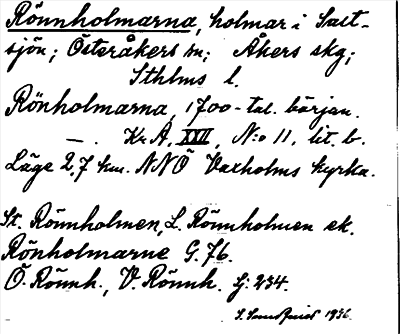 Rönnholmarna, holmar i Salt-
sjön; Österåkers sn; Åkers skg;
Sthlms l.
Rönholmarna, 1700-tal. början.
— . Kr.A. XXII, N:o 11, lit. b.
Läge 2,7 km. NNÖ Vaxholms kyrka.
St. Rönnholmen, L. Rönnholmen ek.
Rönholmarne G. 76.
Ö. Rönnh., V. Rönnh. Sj: 234.
1936.